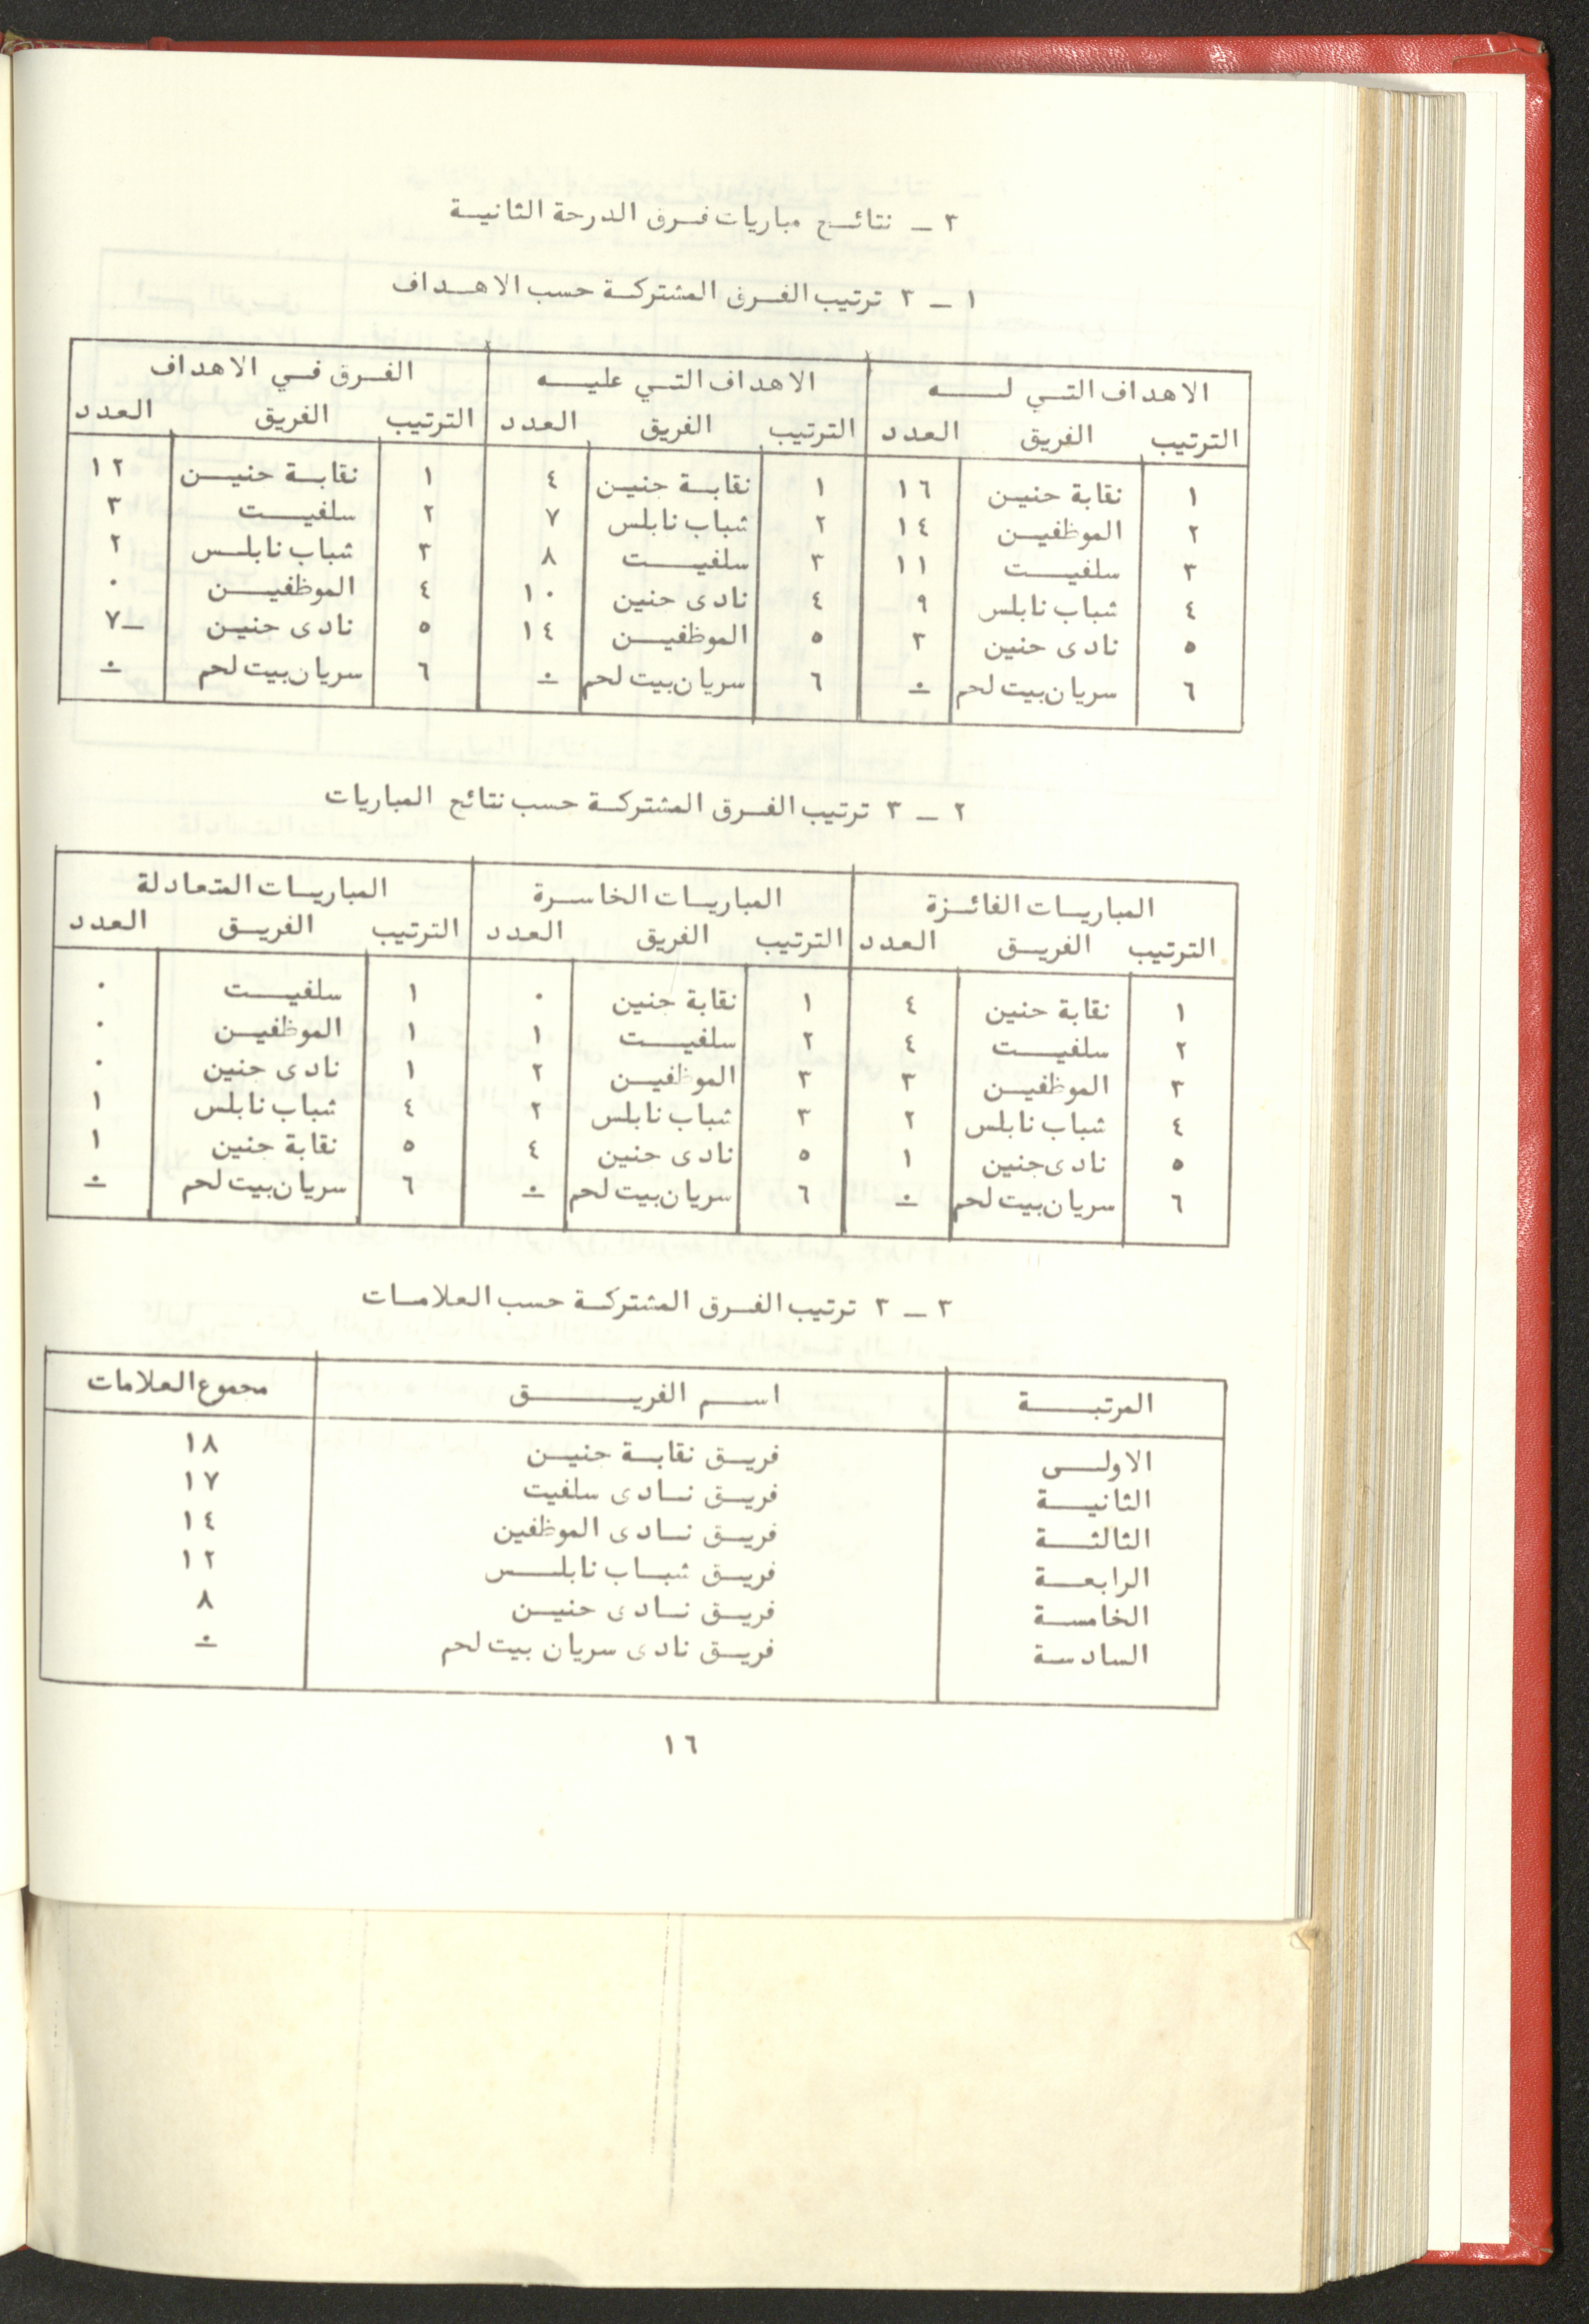 ٣ ــ نتائــج مباريات فــرق الدرجة الثانيــة
١ ــ ٣ ترتيب الفــرق المشتركــة حسب الاهــداف
الاهداف التــي لــــه الاهداف التــي عليــــه الفــرق فــي الاهداف
الترتيب الفريق العدد الترتيب الفريق العدد الترتيب الفريق العدد
١ نقابة جنيــن ١٦ ١ نقابــة جنيــن ٤ ١ نقابــة جنيــن ١٢
٢ الموظفيــن ١٤ ٢ شباب نابلس ٧ ٢ سلفيــــت ٣
٣ سلفيــــت ١١ ٣ سلفيــــت ٨ ٣ شباب نابلــس ٢
٤ شباب نابلس ٩ ٤ نادى جنين ١٠ ٤ الموظفيــن ٠
٥ نادى جنين ٣ ٥ الموظفيــن ١٤ ٥ نادى جنين ــ٧
٦ سريان بيت لحم ٠ ٦ سريان بيت لحم ٠ ٦ سريان بيت لحم ٠
٢ ــ ٣ ترتيب الفــرق المشتركــة حسب نتائج المباريات
المباريــات الفائــزة المباريــات الخاســرة المباريــات المتعادلة
الترتيب الفريــق العدد الترتيب الفريق العدد الترتيب الفريــق العدد
١ نقابة جنين ٤ ١ نقابة جنين ٠ ١ سلفيــــت ٠
٢ سلفيــــت ٤ ٢ سلفيــــت ١ ١ الموظفيــن ٠
٣ الموظفيــن ٣ ٣ الموظفيــن ٢ ١ نادى جنين ٠
٤ شباب نابلس ٢ ٣ شباب نابلس ٢ ٤ شباب نابلس ١
٥ نادى جنين ١ ٥ نادى جنين ٤ ٥ نقابة جنين ١
٦ سريان بيت لحم ٠ ٦ سريان بيت لحم ٠ ٦ سريان بيت لحم ٠
٣ ــ ٣ ترتيب الفــرق المشتركــة حسب العلامــات
المرتبــــة اســـم الفريــــــق مجموع العلامات
الاولــــى فريــق نقابــة جنيــن ١٨
الثانيــــة فريــق نــادى سلفيت ١٧
الثالثــــة فريــق نــادى الموظفين ١٤
الرابعــــة فريــق شبــاب نابلــــس ١٢
الخامســة فريــق نــادى جنيــن ٨
السادسة فريــق نادى سريان بيت لحم ٠
١٦